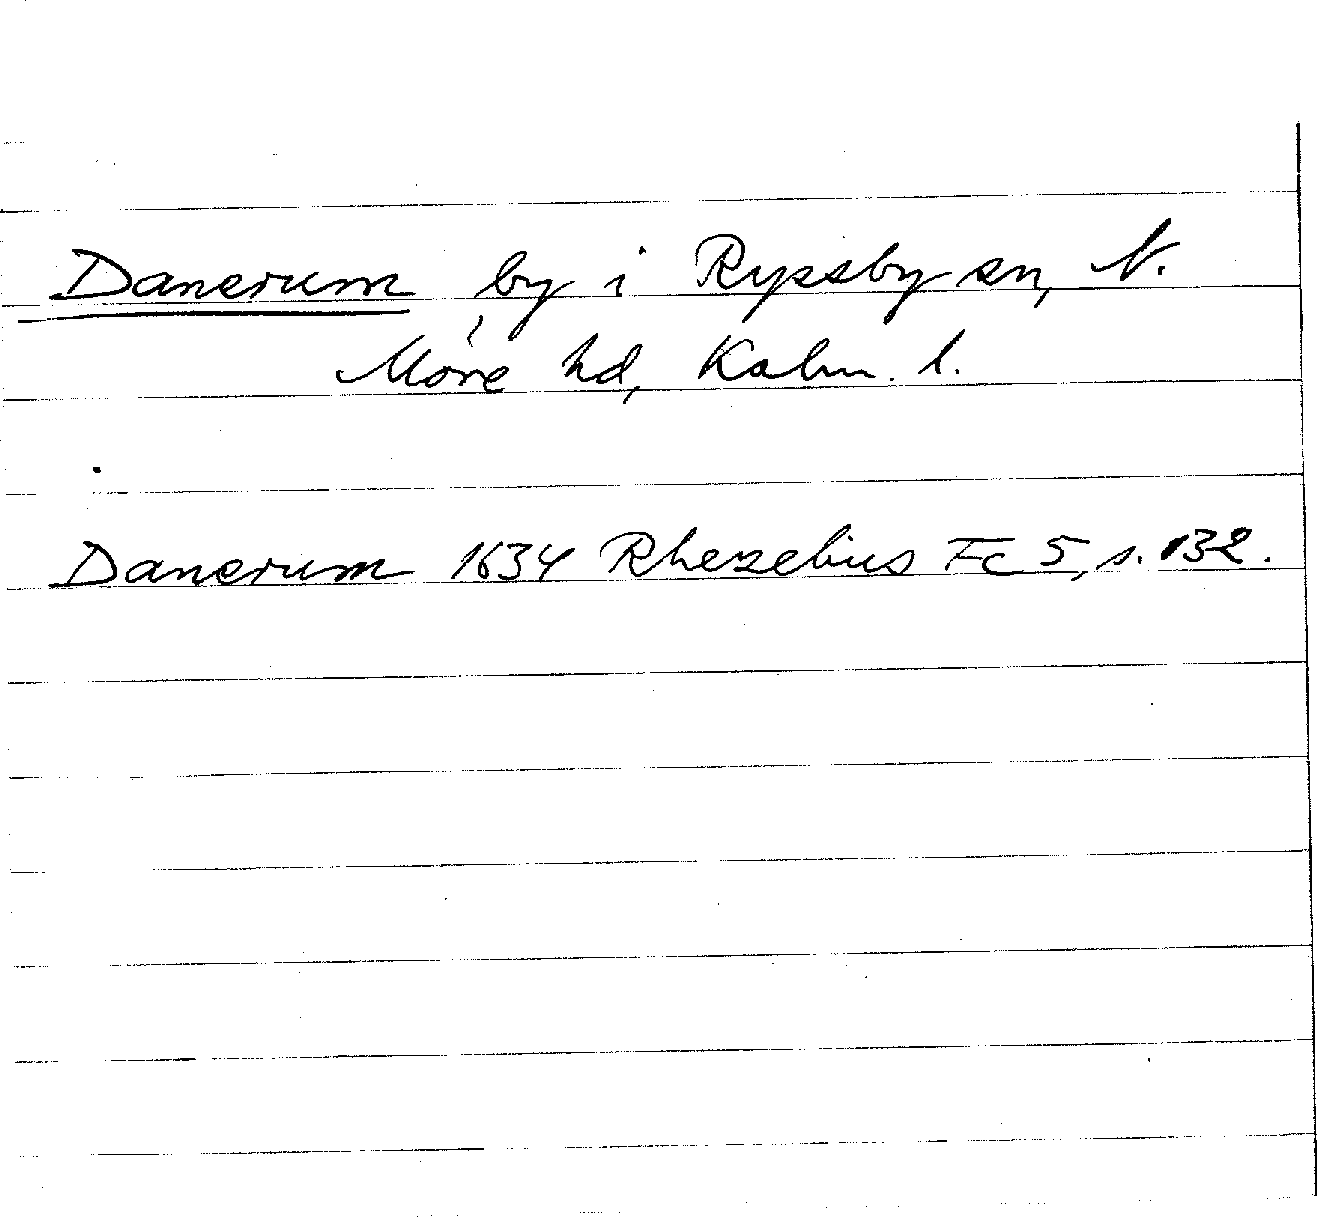 Danerum by i Ryssby sn, N.
Möre hd, Kalm. l.
Danerum 1634 Rhezelius Fc 5, s. 132.